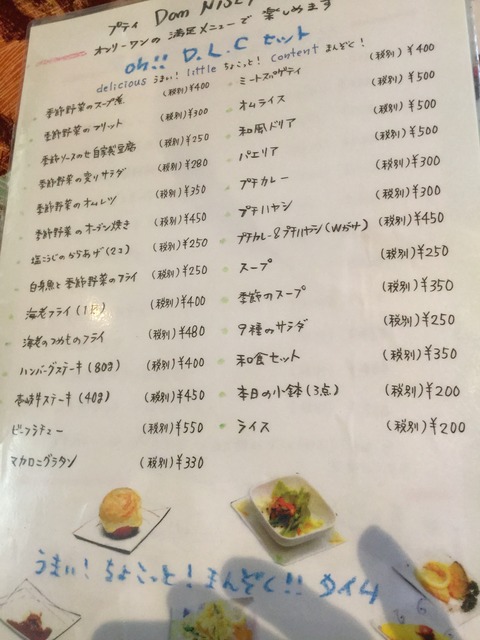 プティ Dom
オンリーワンの 満足メニューで 楽しめます
oh!! D.L.C セット
delicious うまい! little ちょこっと! content まんぞく!
季節野菜のスープ煮 (税別)¥400
季節野菜のフリット (税別)¥300
季節ソースのせ自家製豆腐 (税別)¥250
季節野菜の実りサラダ (税別)¥280
季節野菜のオムレツ (税別)¥350
季節野菜のオーブン焼き (税別)¥450
塩こうじのからあげ(2コ) (税別)¥250
白身魚と季節野菜のフライ (税別)¥250
海老フライ (税別)¥400
海老のつめものフライ (税別)¥480
ハンバーグステーキ(80g) (税別)¥400
壱岐牛ステーキ(40g) (税別)¥450
ビーフシチュー (税別)¥550
マカロニグラタン (税別)¥330
ミートスパゲティ (税別)¥400
オムライス (税別)¥500
和風ドリア (税別)¥500
パエリア (税別)¥500
プチカレー (税別)¥300
プチハヤシ (税別)¥300
プチカレー&プチハヤシ (税別)¥450
スープ (税別)¥250
季節のスープ (税別)¥350
9種のサラダ (税別)¥250
和食セット (税別)¥350
本日の小鉢(3点) (税別)¥200
ライス (税別)¥200
うまい! ちょこっと! まんぞく!! タイム